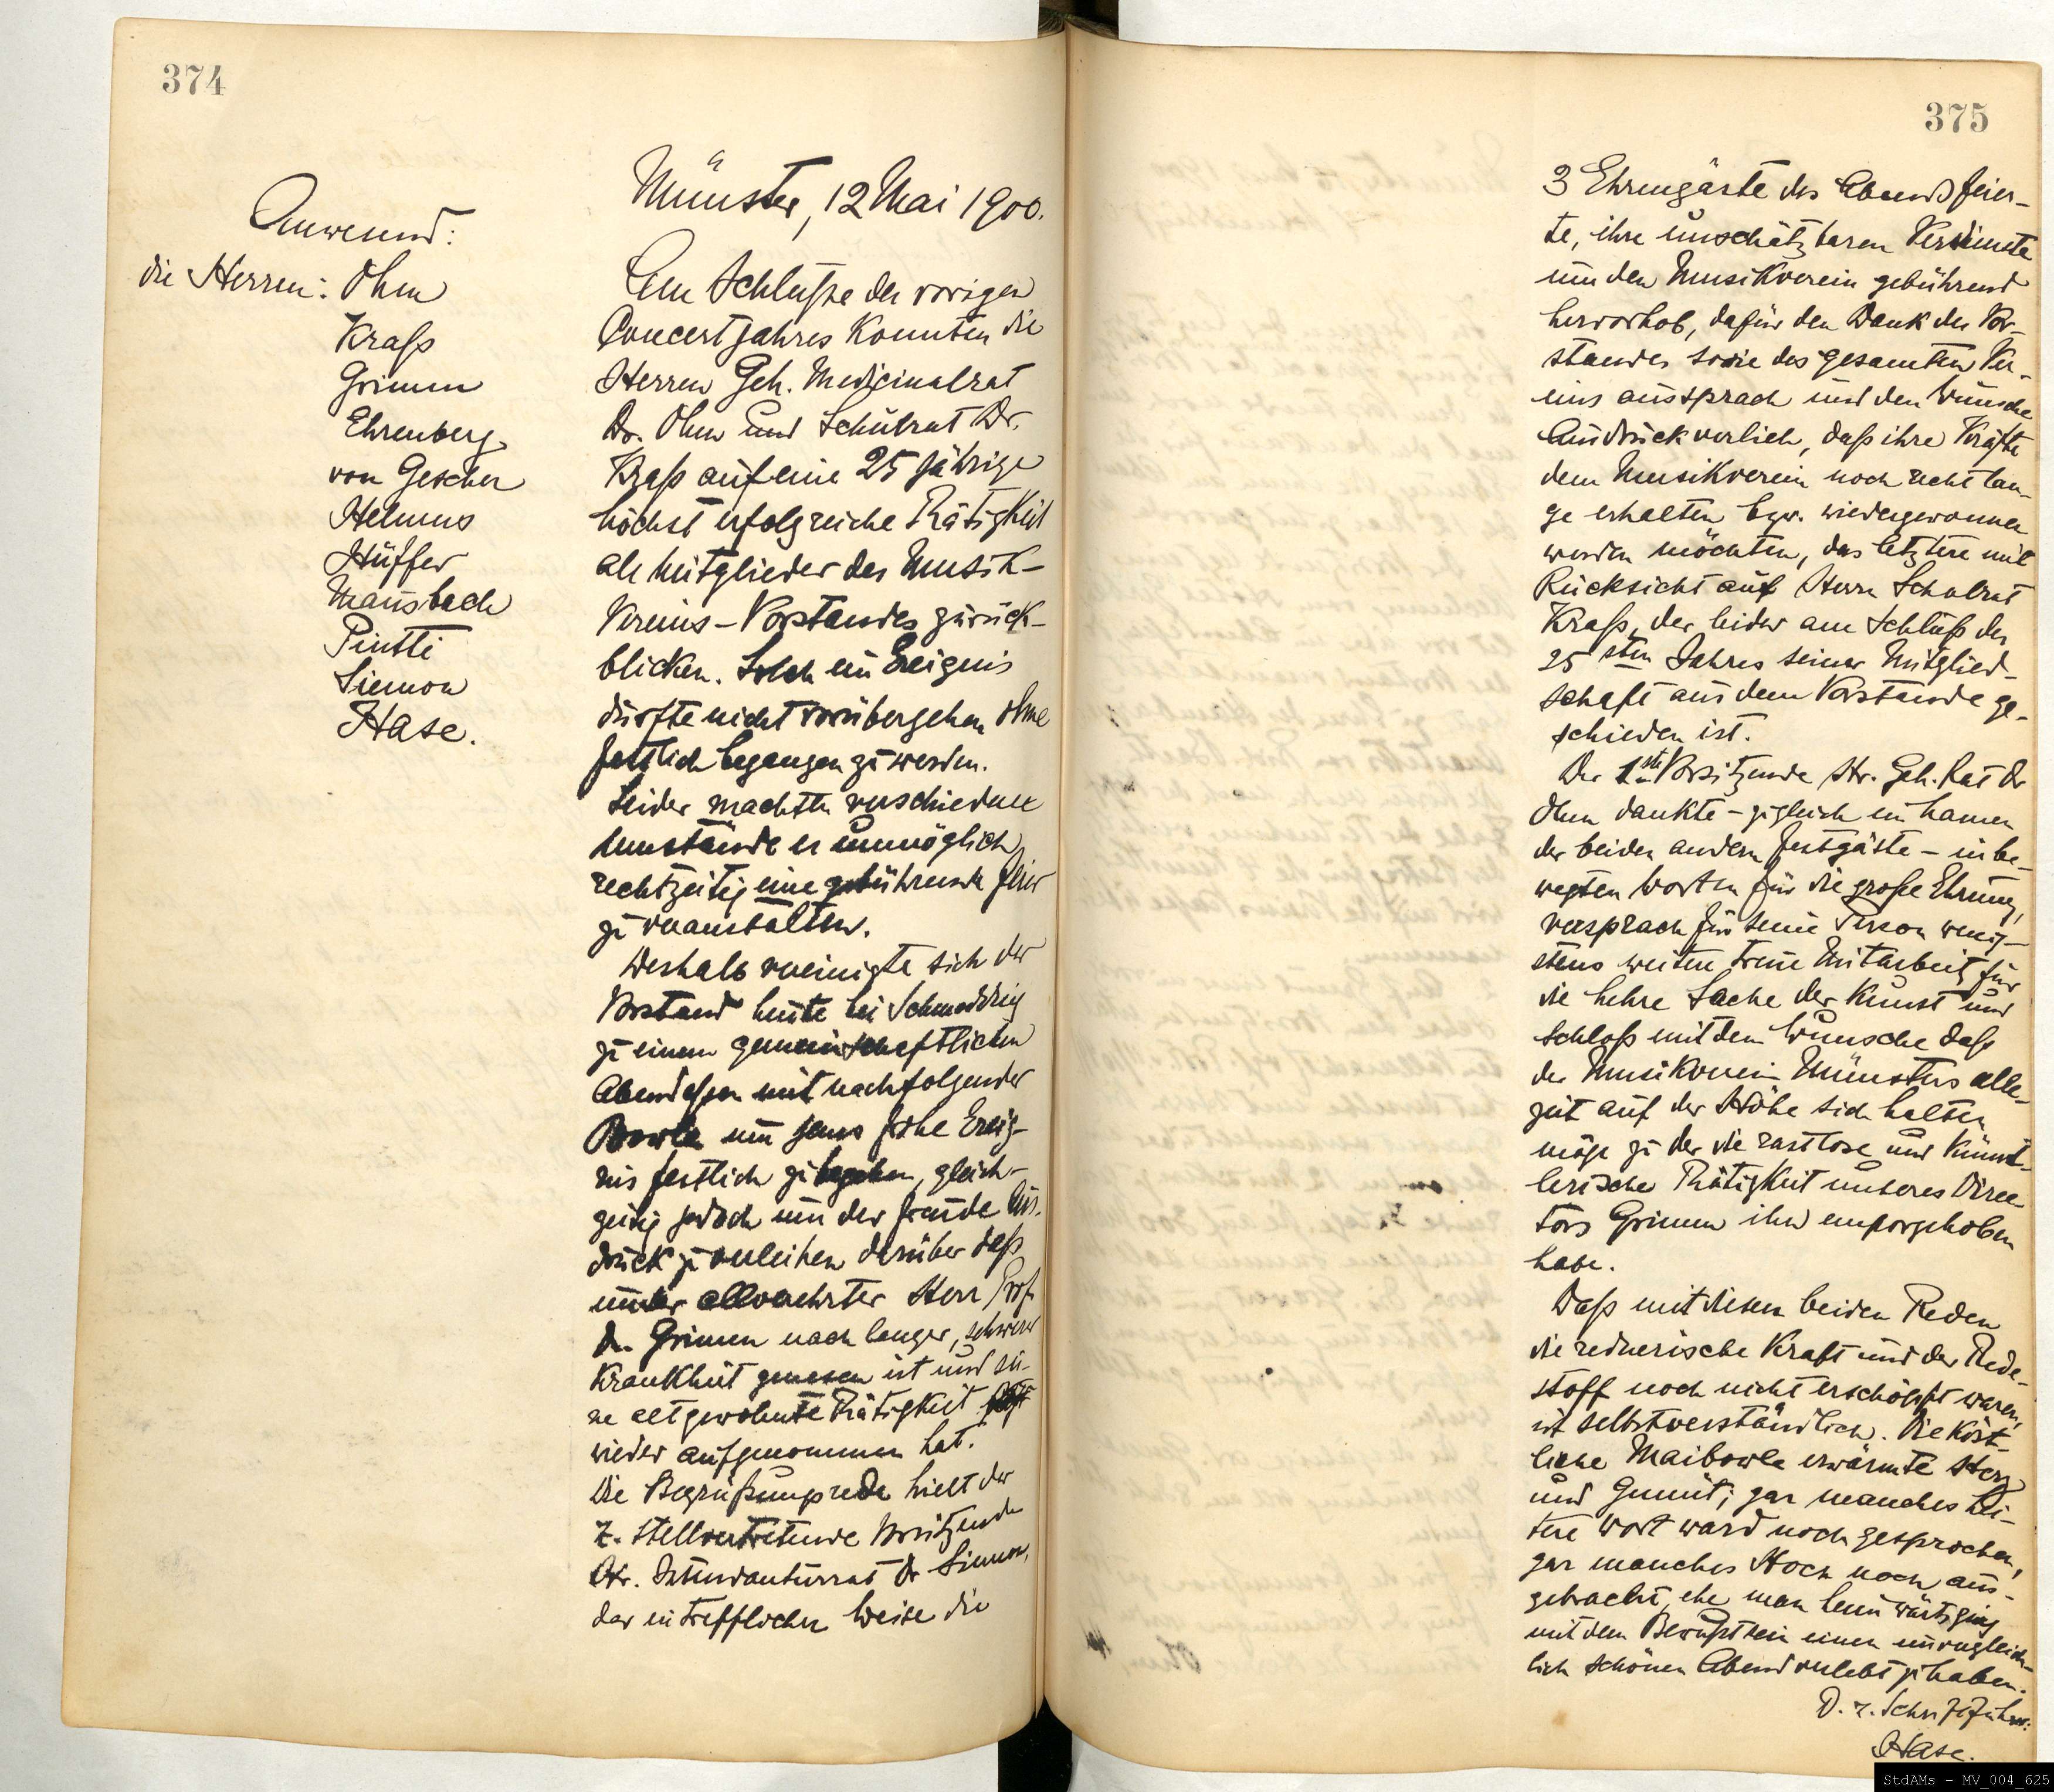 374
Anwesend:
die Herren: Ohm
Kraß
Grimm
Ehrenberg
von Gescher
Helmus
Hüffer
Mausbach
Siemon
Hase.
Münster, 12 Mai 1900.
Am Schluße des vorigen
Concertjahres konnten die
Herren Geh. Medicinalrat
Dr. Ohm und Schulrat Dr.
Kraß auf eine 25 jährige
höchst erfolgreiche Thätigkeit
als Mitglieder des Musik-
Vereins-Vorstandes zurück-
blicken. Solch ein Ereignis
dürfte nicht vorübergehen ohne
festlich begangen zu werden.
Leider machten verschiedene
Umstände es unmöglich,
rechtzeitig eine gebührende Feier
zu veranstalten.
Deshalb vereinigte sich der
Vorstand heute bei Schmedding
zu einem gemeinschaftlichen
Abendessen mit nachfolgender
Bowle um jenes frohe Ereig-
nis festlich zu begehen, gleich-
zeitig jedoch um der Freude Aus-
druck zu verleihen darüber daß
unser allverehrter Herr Prof.
Dr. Grimm nach langer, schwerer
Krankheit genesen ist und sei-
ne altgewohnte Thätigkeit
wieder aufgenommen hat.
Die Begrüßungsrede hielt der
z. stellvertretende Vorsitzende
Hr. Intendanturrat Dr Siemon,
der in trefflicher Weise die
375
3 Ehrengäste des Abends feier-
te, ihre unschätzbaren Verdienste
um den Musikverein gebührend
hervorhob, dafür den Dank des Vor-
standes sowie des gesamten Ver-
eins aussprach und dem Wunsche
Ausdruck verlieh, daß ihre Kräfte
dem Musikverein noch recht lan-
ge erhalten, bzw. wiedergewonnen
werden möchten, das letztere mit
Rücksicht auf Herrn Schulrat
Kraß, der leider am Schluß des
25 sten Jahres seiner Mitglied-
schaft aus dem Vorstande ge-
schieden ist.
Der 1ste Vorsitzende Hr. Geh. Rat Dr
Ohm dankte – zugleich im Namen
der beiden andern Festgäste – in be-
wegten Worten für die große Ehrung,
versprach für seine Person wenig-
stens weitere treue Mitarbeit für
die hehre Sache der Kunst und
schloß mit dem Wunsche daß
der Musikverein Münsters alle-
zeit auf der Höhe sich halten
möge zu der die rastlose und künst-
lerische Thätigkeit unseres Direc-
tors Grimm ihn emporgehoben
habe.
Daß mit diesen beiden Reden
die rednerische Kraft und der Rede-
stoff noch nicht erschöpft waren,
ist selbstverständlich. Die köst-
liche Maibowle erwärmte Herz
und Gemüt; gar manches hei-
tere Wort ward noch gesprochen,
gar manches Hoch noch aus-
gebracht, ehe man heimwärts ging
mit dem Bewußtsein einen unvergleich-
lich schönen Abend verlebt zu haben.
D. z. Schriftführer:
Hase.
StdAMs – MV_004_625